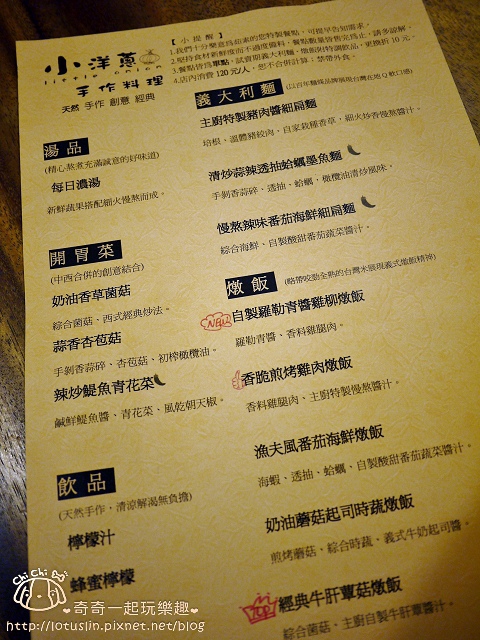 小洋蔥
little onion
手作料理
天然 手作 創意 經典
【小提醒】
1.我們十分樂意為茹素的您特製餐點，可提早告知需求。
2.堅持食材新鮮度而不過度備料，餐點數量皆售完為止，請多諒解。
3.餐點皆為單點，試賣期義大利麵、燉飯附特調飲品，更換折10元。
4.店內消費120元/人，恕不合併計算；禁帶外食。
湯品
(精心熬煮充滿誠意的好味道)
每日濃湯
新鮮蔬果搭配細火慢熬而成。
開胃菜
(中西合併的創意結合)
奶油香草菌菇
綜合菌菇、西式經典炒法。
蒜香杏苞菇
手剝香蒜碎、杏苞菇、初榨橄欖油。
辣炒鯷魚青花菜
鹹鮮鯷魚醬、青花菜、風乾朝天椒。
飲品
(天然手作，清涼解渴無負擔)
檸檬汁
蜂蜜檸檬
義大利麵
主廚特製豬肉醬細扁麵
培根、溫體豬絞肉、自家栽種香草，細火炒香慢熬醬汁。
清炒蒜辣透抽蛤蠣墨魚麵
手剝香蒜碎、透抽、蛤蠣，橄欖油清炒風味。
慢熬辣味番茄海鮮細扁麵
綜合海鮮、自製酸甜番茄蔬菜醬汁。
燉飯
(略帶咬勁全熟的台灣米展現義式燉飯精神)
NEW
自製羅勒青醬雞柳燉飯
羅勒青醬、香料雞腿肉。
香脆煎烤雞肉燉飯
香料雞腿肉、主廚特製慢熬醬汁。
漁夫風番茄海鮮燉飯
海蝦、透抽、蛤蠣、自製酸甜番茄蔬菜醬汁。
奶油蘑菇起司時蔬燉飯
煎烤蘑菇、綜合時蔬、義式牛奶起司醬。
TOP
經典牛肝蕈菇燉飯
綜合菌菇、主廚自製牛肝蕈醬汁。
Chi Chi
奇奇一起玩樂趣
http://lotuslin.pixnet.net/blog